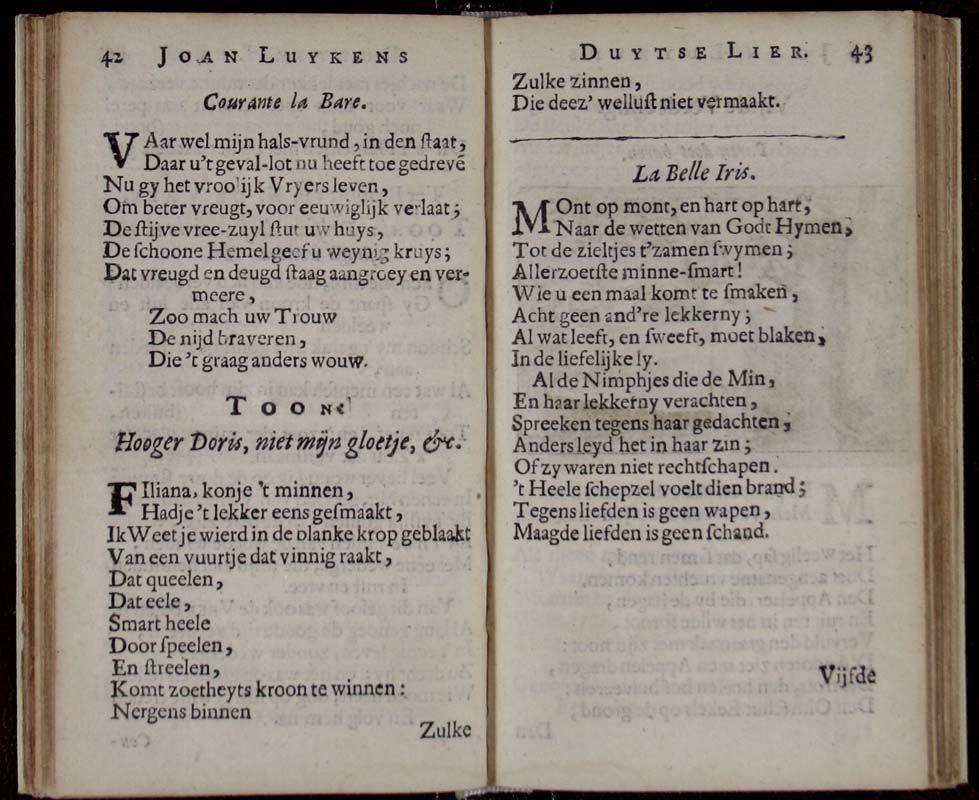 42 JOAN LUYKENS
Courante la Bare.
VAar wel mijn hals-vrund, in den ſtaat,
Daar u't geval-lot nu heeft toe gedrevē
Nu gy het vroolijk Vryers leven,
Om beter vreugt, voor eeuwiglijk verlaat;
De ſtijve vree-zuyl ſtut uw huys,
De ſchoone Hemel geef u weynig kruys;
Dat vreugd en deugd ſtaag aangroey en ver-
meere,
Zoo mach uw Trouw
De nijd braveren,
Die 't graag anders wouw.
TOON:
Hooger Doris, niet mijn gloetje, &c.
FIliana, konje 't minnen,
Hadje 't lekker eens geſmaakt,
Ik Weet je wierd in de blanke krop geblaakt
Van een vuurtje dat vinnig raakt,
Dat queelen,
Dat eele,
Smart heele
Door ſpeelen,
En ſtreelen,
Komt zoetheyts kroon te winnen:
Nergens binnen
Zulke
DUYTSE LIER. 43
Zulke zinnen,
Die deez' welluſt niet vermaakt.
La Belle Iris.
MOnt op mont, en hart op hart,
Naar de wetten van Godt Hymen,
Tot de zieltjes t'zamen ſwymen;
Allerzoetſte minne-ſmart!
Wie u een maal komt te ſmaken,
Acht geen and're lekkerny;
Al wat leeft, en ſweeft, moet blaken,
In de liefelijke ly.
Al de Nimphjes die de Min,
En haar lekkerny verachten,
Spreeken tegens haar gedachten,
Anders leyd het in haar zin;
Of zy waren niet rechtſchapen.
't Heele ſchepzel voelt dien brand;
Tegens liefden is geen wapen,
Maagde liefden is geen ſchand.
Vijfde